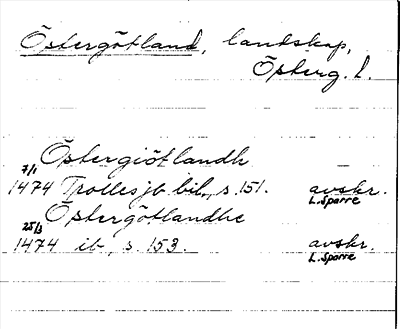 Östergötland, landskap,
Österg. l.
Östergiötlandh
7/1
1474 Trolles jb bil., s. 151. avskr.
L. Sparre
Östergötlandhe
25/3
1474 ib., s. 153. avskr.
L. Sparre